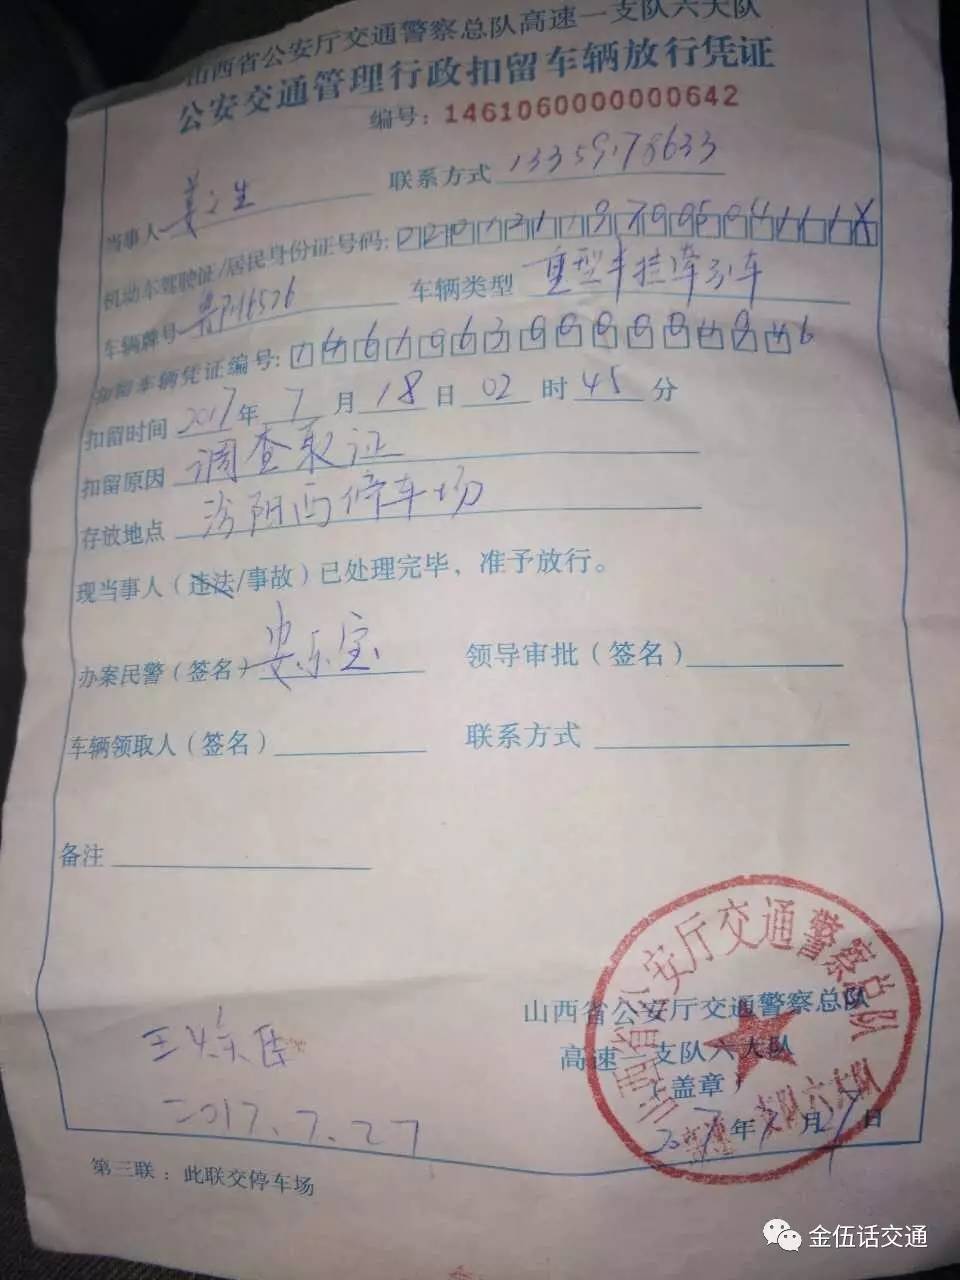 山西省公安厅交通警察总队高速一支队六大队
公安交通管理行政扣留车辆放行凭证
编号：1461060000000642
当事人 姜之生 联系方式 13359178633
机动车驾驶证/居民身份证号码：
车辆牌号 车辆类型 重型半挂牵引车
扣留车辆凭证编号：
扣留时间 2017年 7 月 18 日 02 时 45 分
扣留原因 调查取证
存放地点 汾阳西停车场
现当事人（违法/事故）已处理完毕，准予放行。
办案民警（签名） 领导审批（签名）
车辆领取人（签名） 联系方式
备注
山西省公安厅交通警察总队
高速一支队六大队
（盖章）
2017年7月27日
二017.7.27
第三联：此联交停车场
山西省公安厅交通警察总队
高速一支队六大队
金伍话交通